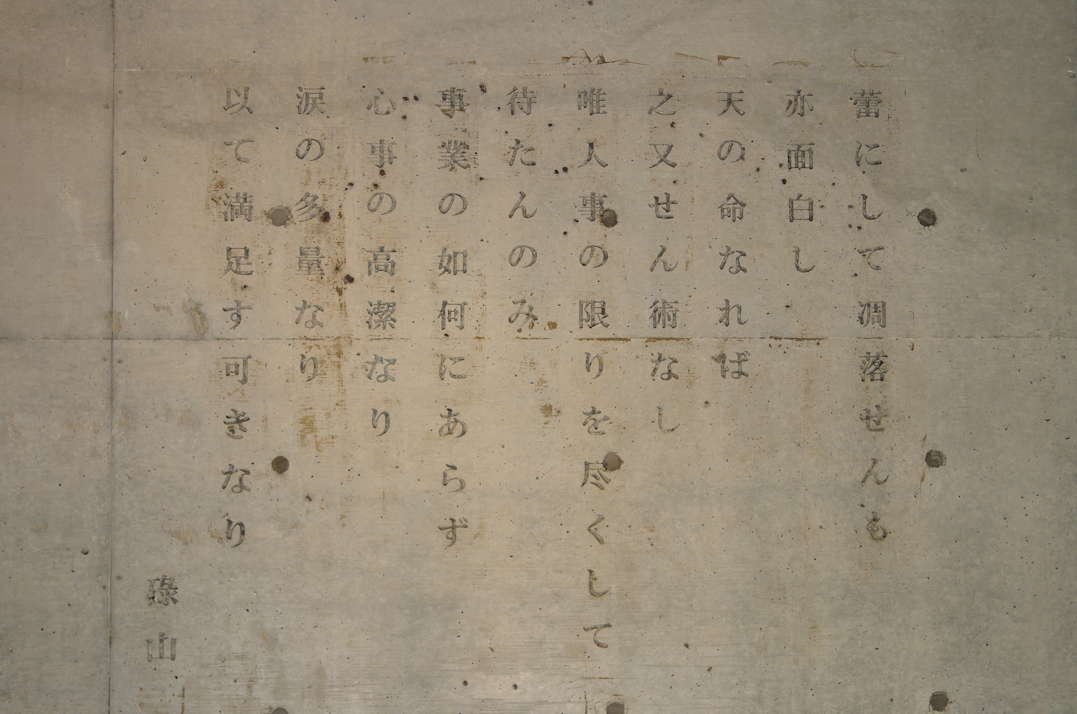 蕾にして凋落せんも
亦面白し
天の命なれば
之又せん術なし
唯人事の限りを尽くして
待たんのみ
事業の如何にあらず
心事の高潔なり
涙の多量なり
以て満足す可きなり
碌山